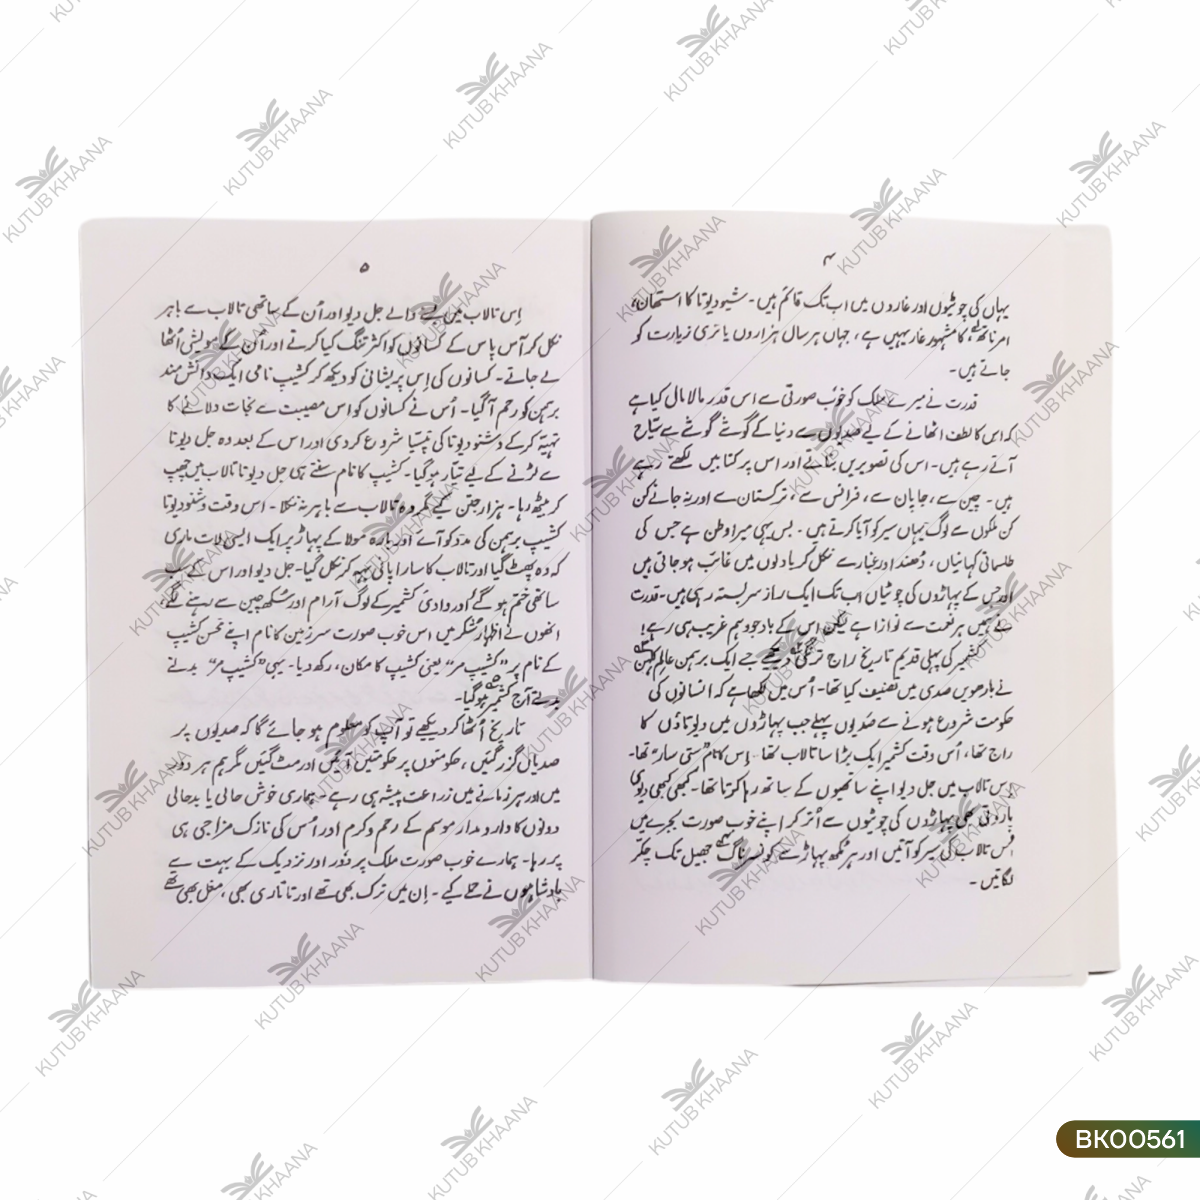 ۴
یہاں کی چوٹیوں اور غاروں میں اب تک قائم ہیں۔ شیو دیوتا کا استھان،
امرناتھ کا مشہور غار یہیں ہے، جہاں ہر سال ہزاروں یاتری زیارت کو
جاتے ہیں۔
قدرت نے میرے ملک کو خوب صورتی سے اس قدر مالا مال کیا ہے
کہ اس کا لطف اٹھانے کے لیے صدیوں سے دنیا کے گوشے گوشے سے سیّاح
آتے رہے ہیں۔ اس کی تصویریں بناتے اور اس پر کتابیں لکھتے رہے
ہیں۔ چین سے، جاپان سے، فرانس سے، ترکستان سے اور نہ جانے کن
کن ملکوں سے لوگ یہاں سیر کو آیا کرتے ہیں۔ بس یہی میرا وطن ہے جس کی
طلسماتی کہانیاں، دُھند اور غبارے نکل کر بادلوں میں غائب ہو جاتی ہیں
اور جس کے پہاڑوں کی چوٹیاں اب تک ایک راز سربستہ رہی ہیں۔ قدرت
نے ہمیں ہر نعمت سے نوازا ہے لیکن اس کے باوجود ہم غریب ہی رہے!
کشمیر کی پہلی قدیم تاریخ راج ترنگنی دیکھیے جسے ایک برہمن عالم کلہن
نے بارھویں صدی میں تصنیف کیا تھا۔ اُس میں لکھا ہے کہ انسانوں کی
حکومت شروع ہونے سے صدیوں پہلے جب پہاڑوں میں دیوتاؤں کا
راج تھا، اُس وقت کشمیر ایک بڑا سا تالاب تھا۔ اِس کا نام "ستی سار" تھا۔
اِس تالاب میں جل دیو اپنے ساتھیوں کے ساتھ رہا کرتا تھا۔ کبھی کبھی دیوی
پاروتی بھی پہاڑوں کی چوٹیوں سے اُتر کر اپنے خوب صورت بجرے میں
اُس تالاب کی سیر کو آتیں اور ہرمُکھ پہاڑ سے کونسر ناگ جھیل تک چکّر
لگاتیں۔
۵
اِس تالاب میں بسنے والے جل دیو اور اُن کے ساتھی تالاب سے باہر
نکل کر آس پاس کے کسانوں کو اکثر تنگ کیا کرتے اور اُن کے مویشی اُٹھا
لے جاتے۔ کسانوں کی اِس پریشانی کو دیکھ کر کشیپ نامی ایک دانش مند
برہمن کو رحم آ گیا۔ اُس نے کسانوں کو اس مصیبت سے نجات دلانے کا
تہیّہ کر کے وشنو دیوتا کی تپسیا شروع کر دی اور اس کے بعد وہ جل دیوتا
سے لڑنے کے لیے تیار ہو گیا۔ کشیپ کا نام سنتے ہی جل دیوتا تالاب میں چھپ
کر بیٹھ رہا۔ ہزار جتن کیے مگر وہ تالاب سے باہر نہ نکلا۔ اس وقت وشنو دیوتا
کشیپ برہمن کی مدد کو آئے اور بارہ مولا کے پہاڑ پر ایک ایسی لات ماری
کہ وہ پھٹ گیا اور تالاب کا سارا پانی بہہ کر نکل گیا۔ جل دیو اور اس کے سب
ساتھی ختم ہو گئے اور وادیِ کشمیر کے لوگ آرام اور سُکھ چین سے رہنے لگے،
انھوں نے اظہارِ تشکر میں اس خوب صورت سرزمین کا نام اپنے محسن کشیپ
کے نام پر "کشیپ مر" یعنی کشیپ کا مکان، رکھ دیا۔ یہی "کشیپ مر" بدلتے
بدلتے آج کشمیر ہو گیا۔
تاریخ اُٹھا کر دیکھیے تو آپ کو معلوم ہو جائے گا کہ صدیوں پر
صدیاں گزر گئیں، حکومتوں پر حکومتیں آئیں اور مٹ گئیں مگر ہم ہر دور
میں اور ہر زمانے میں زراعت پیشہ ہی رہے۔ ہماری خوش حالی یا بدحالی
دونوں کا دارومدار موسم کے رحم و کرم اور اُس کی نازک مزاجی ہی
پر رہا۔ ہمارے خوب صورت ملک پر دُور اور نزدیک کے بہت سے
بادشاہوں نے حملے کیے۔ اِن میں ترک بھی تھے اور تاتاری بھی، مغل بھی تھے
BK00561